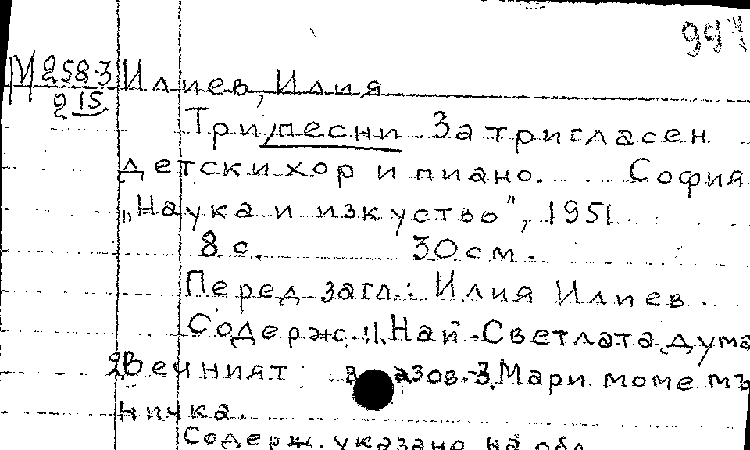 997
М 258-3 Илиев, Илия
2 15
Три песни. За тригласен
детски хор и пиано. София
„Наука и изкуство", 1951
8 с. 30 см.
Перед загл.: Илия Илиев.
Содерж.: 1. Най-Светлата дума
2 Вечният -3. Мари моме мъ
ничка.
Содерж. указано на обл